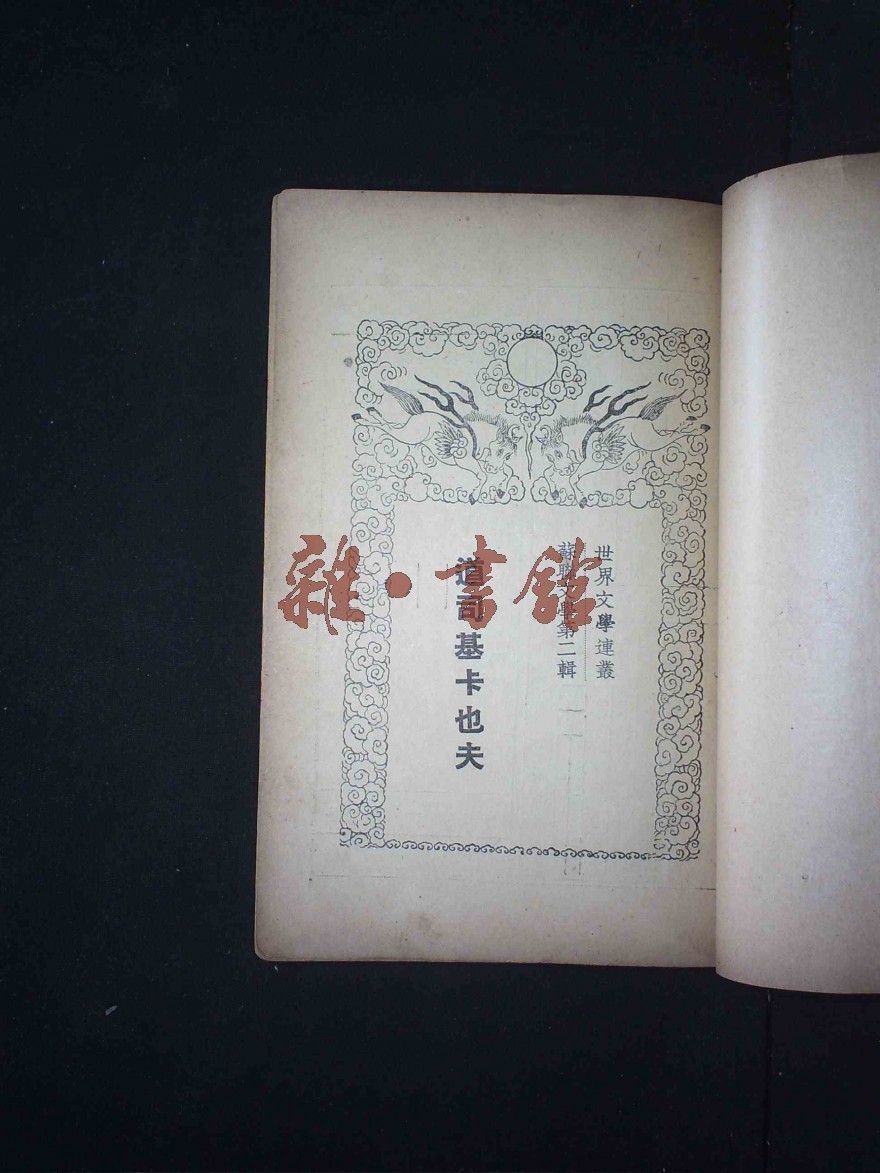 世界文學連叢
蘇聯文學第二輯
道司基卡也夫
雜·書館